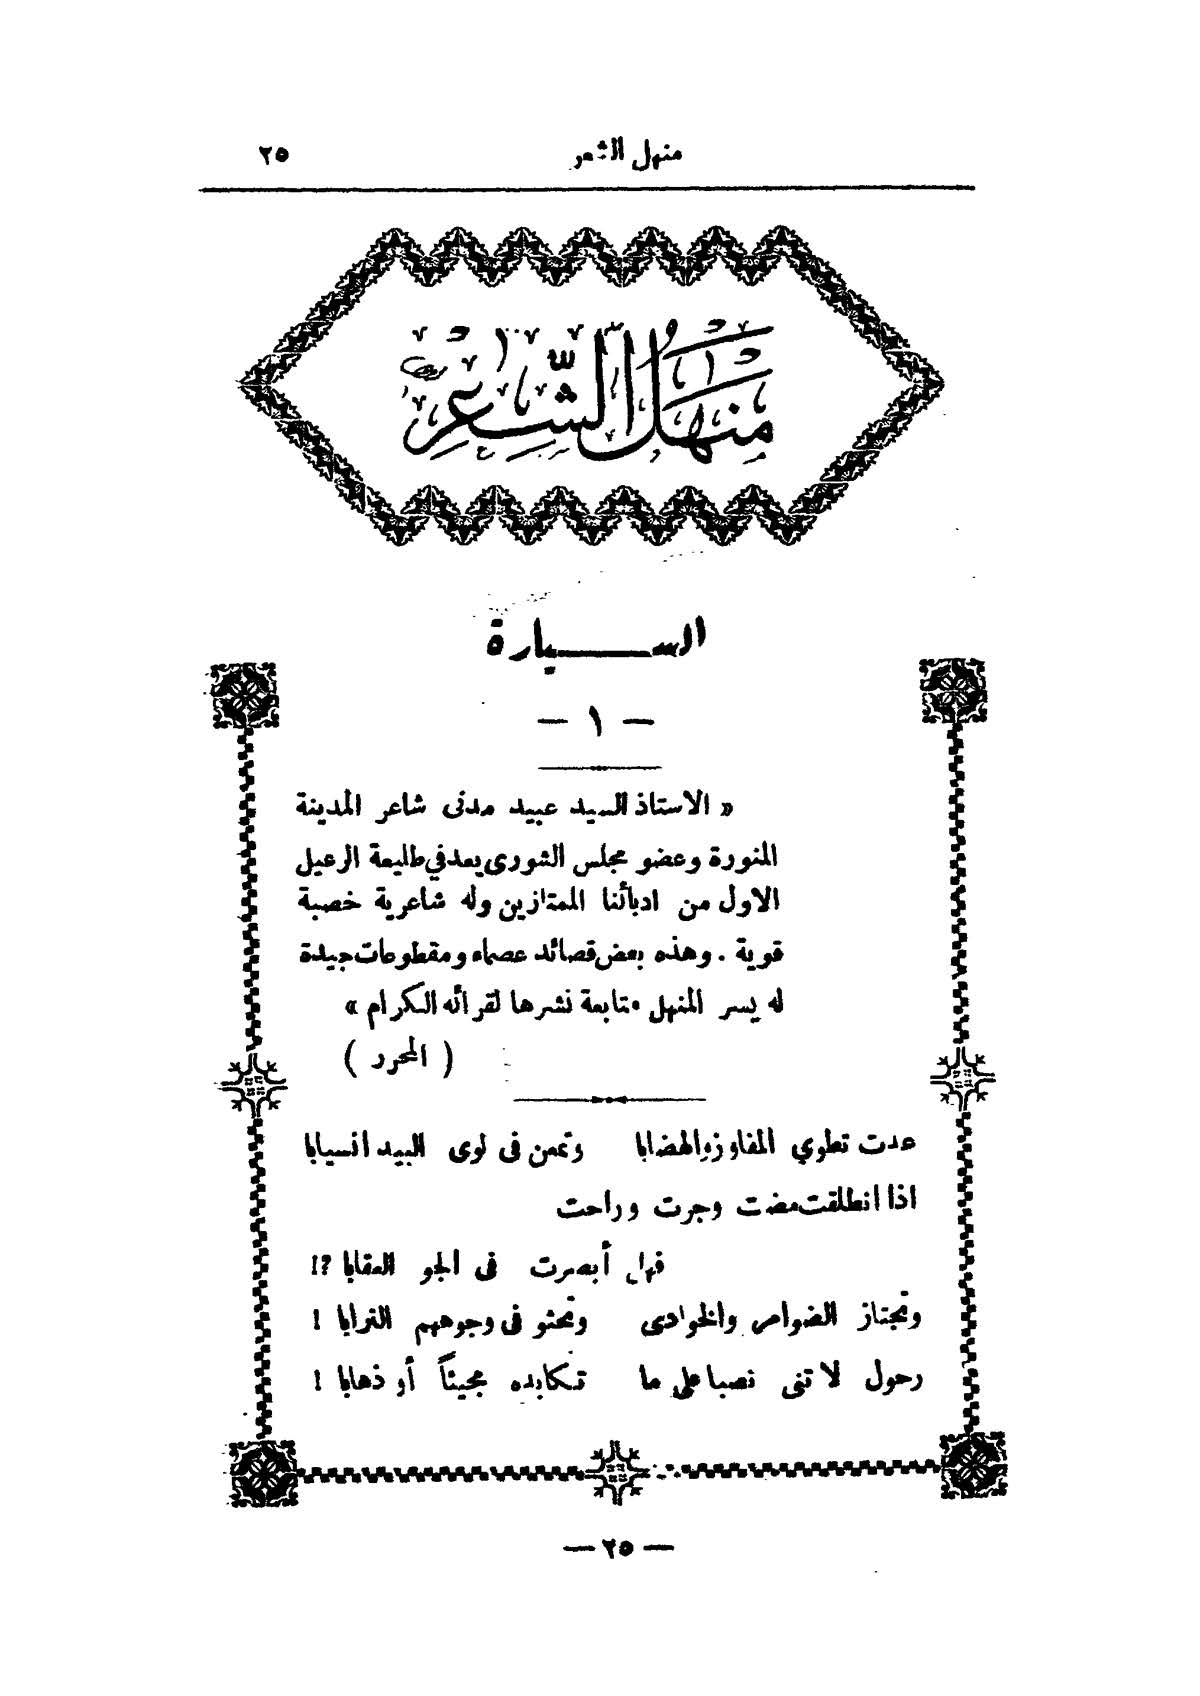 منهل الشعر ٢٥
منهل الشاعر
السيارة
— ١ —
« الاستاذ السيد عبيد مدنى شاعر المدينة
المنورة وعضو مجلس الشورى يعد في طليعة الرعيل
الاول من ادبائنا الممتازين وله شاعرية خصبة
قوية . وهذه بعض قصائد عصماء ومقطوعات جيدة
له يسر المنهل متابعة نشرها لقرائه الكرام »
( المحرر )
عدت تطوي المفاوز والهضابا وتمعن فى لوى البيد انسيابا
اذا انطلقت مضت وجرت وراحت
فهل أبصرت فى الجو العقابا ?!
وتجتاز الضوامر والخوادى وتحثو فى وجوههم الترابا !
رحول لا تنى نصبا على ما تكابده مجيئاً أو ذهابا !
— ٢٥ —